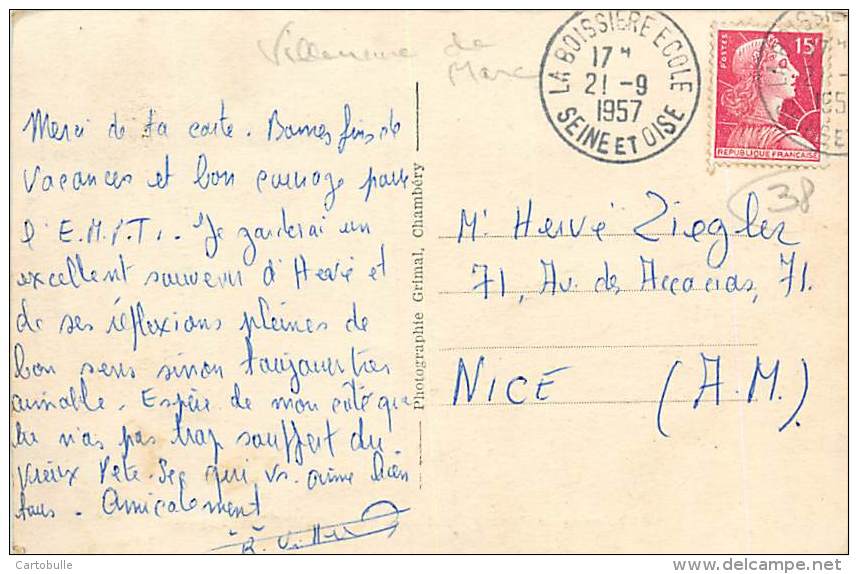 Villeneuve de
Marc
LA BOISSIERE ECOLE
17H
21 -9
1957
SEINE ET OISE
POSTES
15F
REPUBLIQUE FRANÇAISE
38
Merci de ta carte. Bonnes fins de
vacances et bon courage pour
l'E.M.P.T.. Je garderai un
excellent souvenir d'Hervé et
de ses réflexions pleines de
bon sens sinon toujours très
aimable. Espère de mon côté que
tu n'as pas trop souffert du
vieux Pète-Sec qui vs. aime bien
tous. Amicalement
Photographie Grimal, Chambéry
Mr Hervé Ziegler
71, Av. des Accacias, 71.
NICE (A.M.)
Cartobulle
delcampe.net